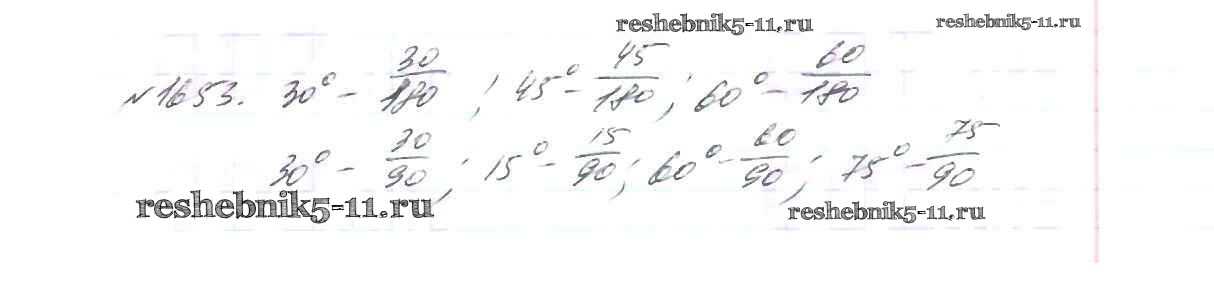 reshebnik5-11.ru reshebnik5-11.ru
№1653. 30° - 30/180 ; 45° - 45/180 ; 60° - 60/180
30° - 30/90 ; 15° - 15/90 ; 60° - 60/90 ; 75° - 75/90
reshebnik5-11.ru reshebnik5-11.ru